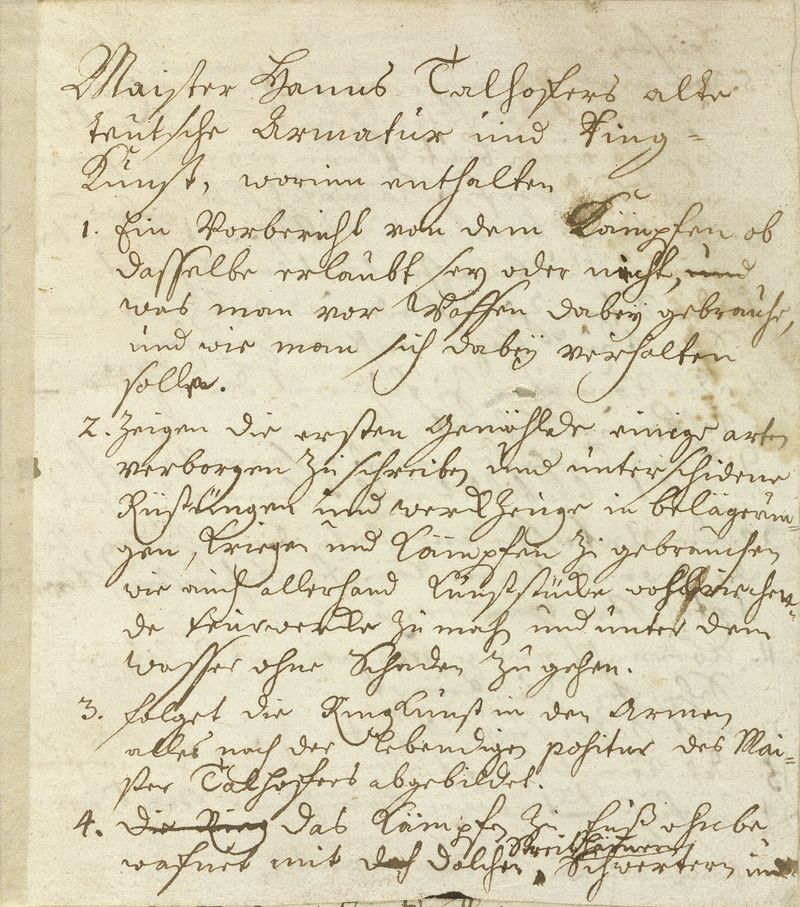 Maister Hanns Talhofers alte
teutsche Armatur und Ring-
Kunst, worinn enthalten
1. Ein Vorbericht von dem Kämpfen ob
dasselbe erlaubt sey oder nicht, und
was man vor Waffen dabey gebrauche,
und wie man sich dabey verhalten
solle.
2. Zeigen die ersten Gemählde einige arten
verborgen Zu schreiben und unterschidene
Rüstungen und werckZeuge in belägerun-
gen, Kriegen und Kämpfen Zu gebrauchen
wie auch allerhand Kunststücke wohlriechen-
de feurwercke Zu mach und unter dem
wasser ohne Schaden Zu gehen.
3. folget die RingKunst in den Armen
alles nach der lebendigen positur des Mai-
ster Talhoffers abgebildet.
4. die Ring das Kämpfen Zu fuß ohnbe
wafnet mit Dolchen, Streithämern, Schwertern und